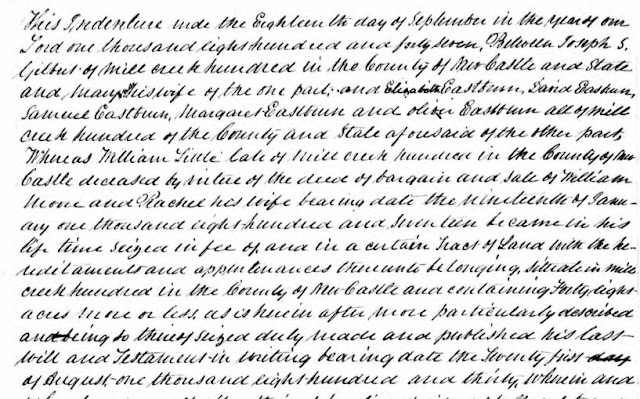 This Indenture made the Eighteenth day of September in the year of our
Lord one thousand eight hundred and forty seven, Between Joseph S.
Gilbert of Mill creek hundred in the County of New Castle and State
and Mary his wife of the one part, and Elizabeth Eastburn, David Eastburn,
Samuel Eastburn, Margaret Eastburn and Oliver Eastburn all of Mill
creek hundred of the County and State aforesaid of the other part,
Whereas William Little late of Mill creek hundred in the County of New
Castle deceased by virtue of the deed of bargain and sale of William
and Rachel his wife bearing date the nineteenth of Janu-
ary one thousand eight hundred and Seventeen became in his
life time Seized in fee of and in a certain Tract of Land with the he-
reditaments and appurtenances thereunto belonging, Situate in Mill
creek hundred in the County of New Castle and containing Forty eight
acres more or less, as is herein after more particularly described
and being so thereof Seized duly made and published his last
Will and Testament in writing bearing date the Twenty first day
of August one thousand eight hundred and thirty, Wherein and